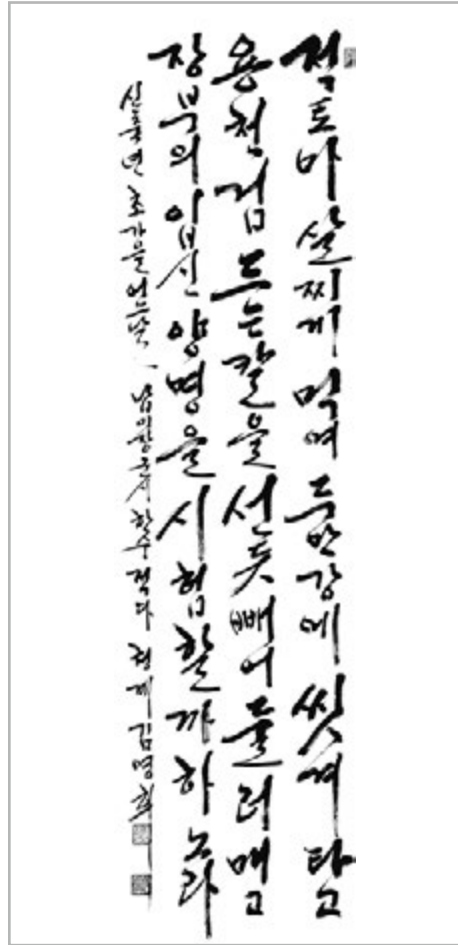 적토마 살찌게 먹여 두만강에 씻겨 타고
용천검 드는 칼을 선듯 빼어 둘러매고
장부의 입신양명을 시험할까 하노라
신축년 초가을 어느날 남이장군시 한수 적다 청계 김명희